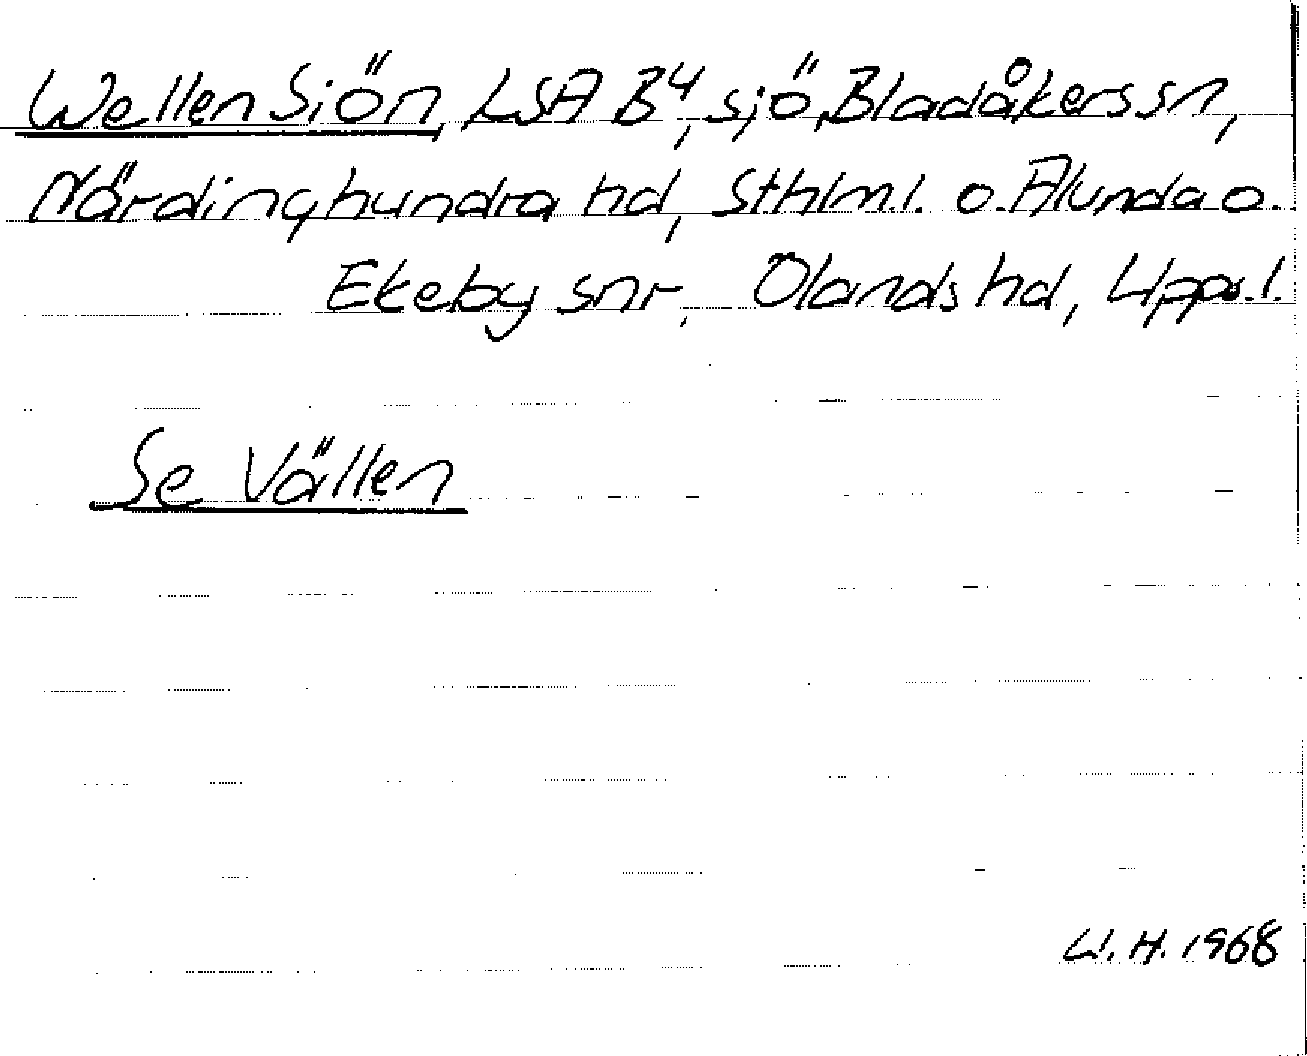 Wellen Siön, LSA B4, sjö, Bladåkers sn,
Närdinghundra hd, Sthlm.l. o. Alunda o.
Ekeby snr, Ölands hd, Upps.l.
Se Vällen
W.H. 1968